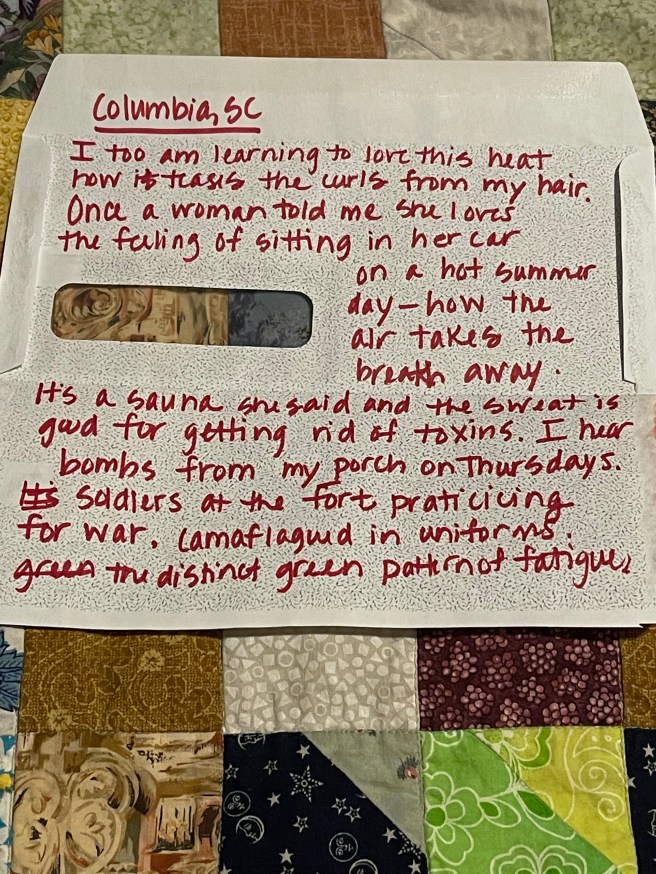 Columbia, SC
I too am learning to love this heat
how it teases the curls from my hair.
Once a woman told me she loves
the feeling of sitting in her car
on a hot summer
day – how the
air takes the
breath away.
It's a sauna she said and the sweat is
good for getting rid of toxins. I hear
bombs from my porch on Thursdays.
It's Soldiers at the fort praticicing
for war. Camaflagued in uniforms.
green the distinct green pattern of fatigue